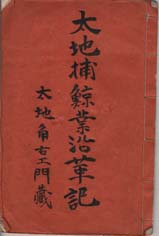 太地捕鯨業沿革記
太地角右エ門藏